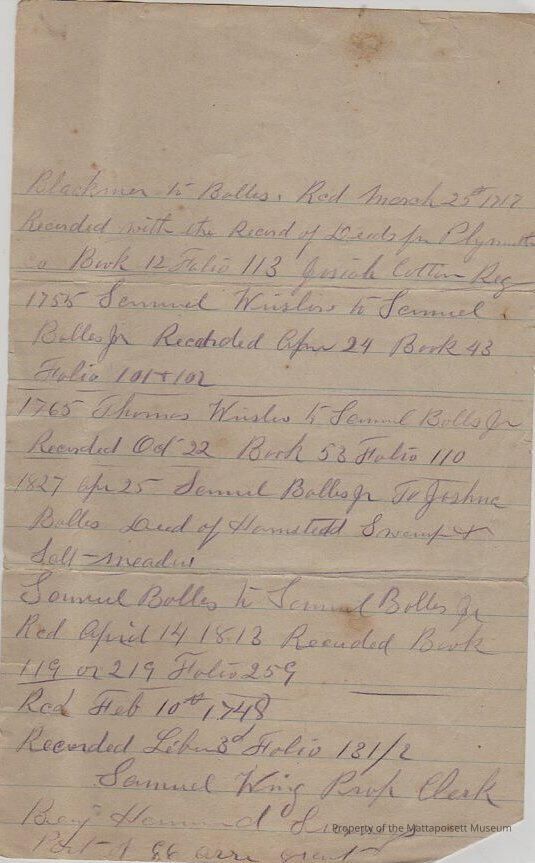 Blackmer to Bolles. Rcd March 25th 1717
Recorded with the Record of Deeds for Plymouth
co Book 12 Folio 113 Josiah Cotton Reg
1755 Samuel Winslow to Samuel
Bolles Jr Recorded Apr 24 Book 43
Folio 101 + 102
1765 Thomas Winslow to Samuel Bolls Jr
Recorded Oct 22 Book 53 Folio 110
1827 Apr 25 Samuel Bolles Jr To Joshua
Bolles Deed of Homstedd Swamp +
Salt-meadow
Samuel Bolles to Samuel Bolles Jr
Rcd April 14 1813 Recorded Book
119 or 219 Folio 259
Rcd Feb 10th 1748
Recorded Liber 3d Folio 131/2
Samuel Wing Prop Clerk
Benj Hammond
Part of 66 acre grant
Property of the Mattapoisett Museum